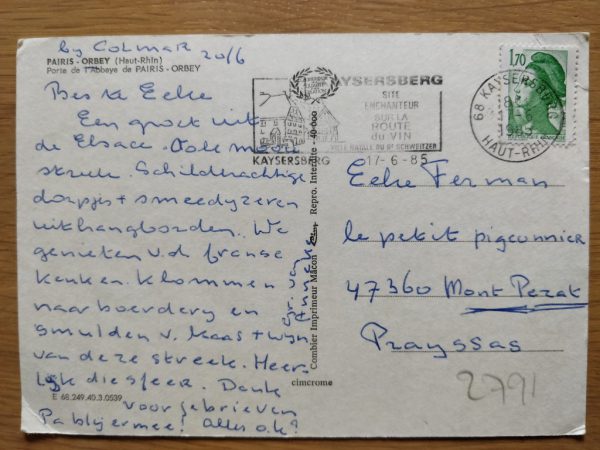 by COLMAR 20/6
PAIRIS - ORBEY (Haut-Rhin)
Porte de l'Abbaye de PAIRIS-ORBEY
Beste Eeke
Een groet uit
de Elsace. Oole mooie
streek. Schilderachtige
dorpjes + smeedyzeren
uithangborden. We
genieten v.d. franse
keuken. Klommen
naar boerdery en
smulden v. kaas + wijn
van deze streek. Heer-
lijk die sfeer. Dank
voor je brieven
Pa blij ermee! Alles o.k?
gr. van
Anneke
E 68.249.40.3.0539
Combier Imprimeur Mâcon Repro. Interdite - 40-600
cimcrome
KAYSERSBERG
SITE
ENCHANTEUR
SUR LA
ROUTE
du VIN
VILLE NATALE DU Dr SCHWEITZER
KAYSERSBERG
17-6-85
1,70
68 KAYSERSBERG
HAUT-RHIN
Eeke Ferman
le petit pigeonnier
47360 Mont Pezat
Prayssas
2791